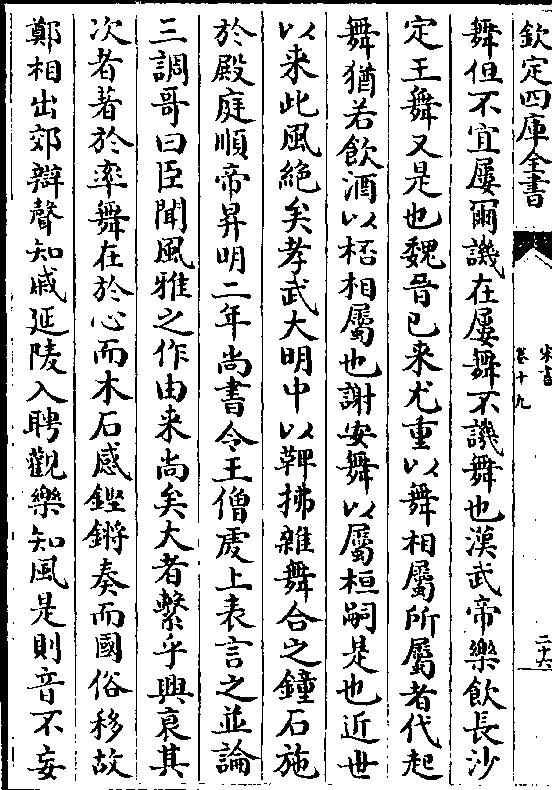 欽定四庫全書
宋書
卷十九
二十六
舞但不宜屢爾譏在屢舞不譏舞也漢武帝樂飲長沙
定王舞又是也魏晉已来尤重以舞相屬所屬者代起
舞猶若飲酒以桮相屬也謝安舞以屬桓嗣是也近世
以来此風絶矣孝武大明中以鞞拂雜舞合之鐘石施
於殿庭順帝昇明二年尚書令王僧虔上表言之並論
三調哥曰臣聞風雅之作由来尚矣大者繫乎興衰其
次者著於率舞在於心而木石感鏗鏘奏而國俗移故
鄭相出郊辯聲知戚延陵入聘觀樂知風是則音不妄